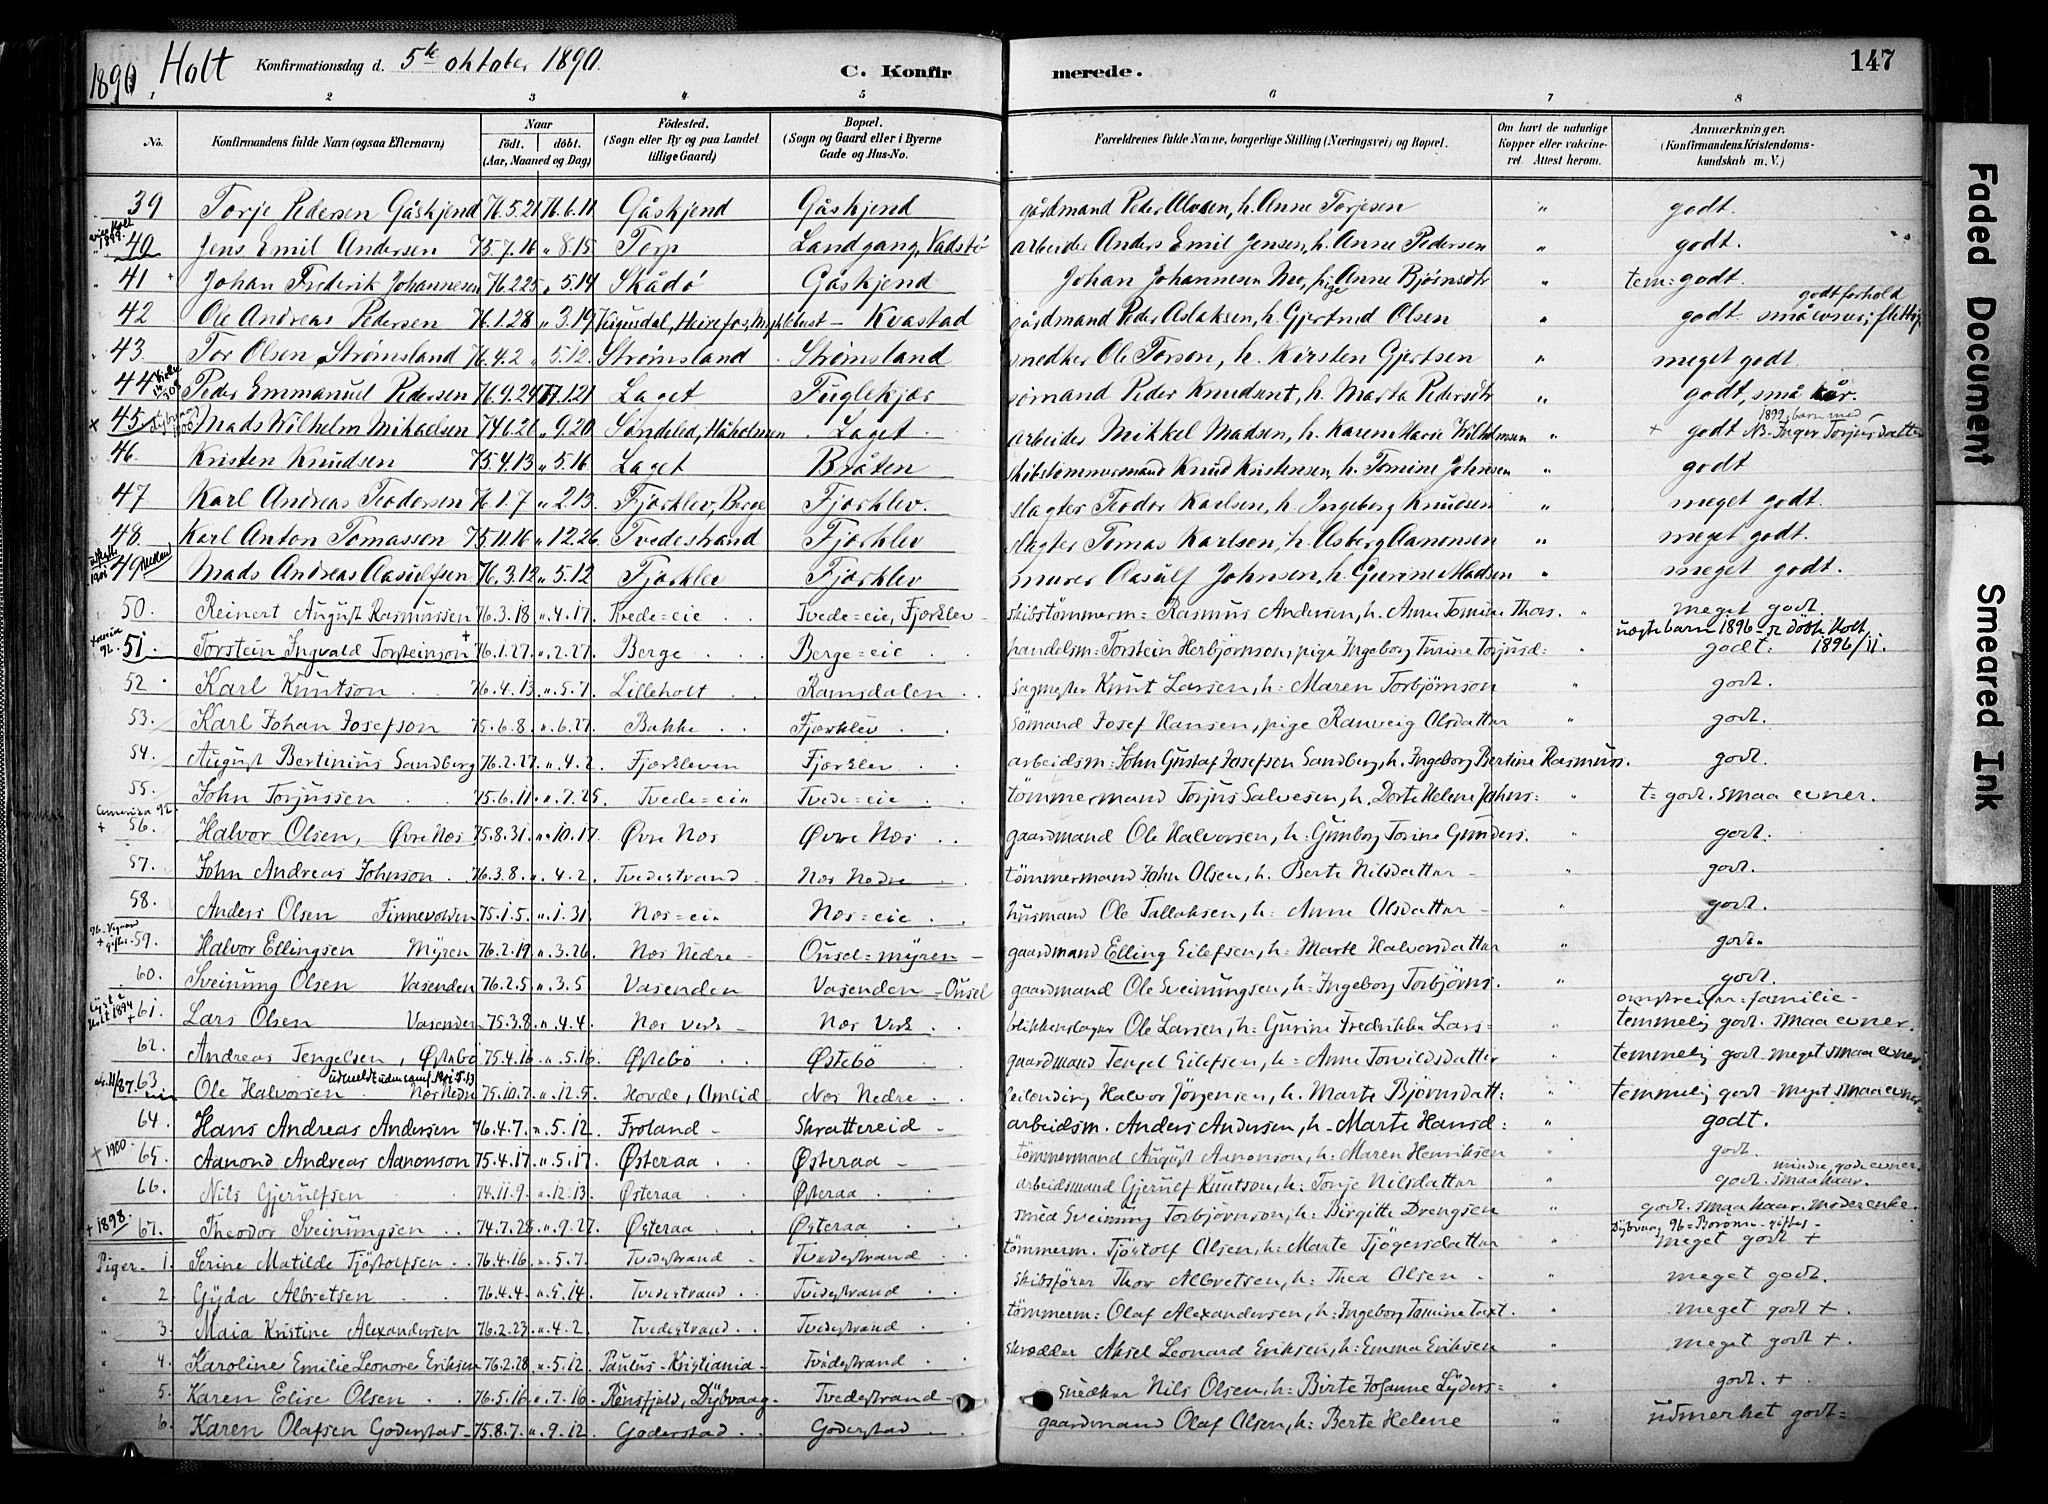 1890 Holt Konfirmationsdag d. 5te oktober 1890. C. Konfirmerede. 147
1 2 3 4 5 6 7 8
No. Konfirmandens fulde Navn (ogsaa Efternavn) Naar født. døbt. (Aar, Maaned og Dag) Fødested. (Sogn eller By og paa Landet tillige Gaard) Bopæl. (Sogn og Gaard eller i Byerne Gade og Hus-No. Forældrenes fulde Navne, borgerlige Stilling (Næringsvei) og Bopæl. Om havt de naturlige Kopper eller vakcineret. Attest herom. Anmærkninger. (Konfirmandens Kristendomskundskab m. V.)
39 Torje Pedersen Gåskjend 76.5.21 76.6.11 Gåskjend Gåskjend gårdmand Peder Olvsen, h. Anne Torjesen " godt.
40 Jens Emil Andersen 75.7.16 " 8.15 Torp Landgang, Vadstø arbeider Anders Emil Jensen, h. Anne Pedersen " godt.
41 Johan Frederik Johannesen 76.2.25 " 5.14 Skådø Gåskjend Johan Johannesen Mo, pige Anne Bjørnsdtr " tem= godt.
42 Ole Andreas Pedersen 76.1.28 " 3.19 Vegusdal, Heirefos, Myklebust - Kvastad gårdmand Peder Aslaksen, h. Gjertrud Olsen " godt. godt forhold små evner; flittig
43. Tor Olsen Strømsland 76.4.2 " 5.12. Strømsland Strømsland snedker Ole Torson, h. Kirsten Gjertsen " meget godt.
44 Peder Emmanuel Pedersen 76.9.24 77.1.21 Laget Fuglekjær sømand Peder Knudsent, h. Marta Pedersdtr " godt, små kår.
x 45. Mads Wilhelm Mikaelsen 74.6.26 " 9.20 Søndeled, Håholmen Laget arbeider Mikkel Madsen, h. Karen Marie Wilhelmsen " + godt 1892, barn med N3. Inger Torjusdatter
46. Kristen Knudsen 75.4.13 " 5.16 Laget Bråten skibstømmermand Knud Kristensen, h. Tomine Johnsen " godt
47 Karl Andreas Teodorsen 76.1.7 " 2.13 Fjærklev, Berge Fjærklev. slagter Teodor Karlsen, h Ingeborg Knudsen " meget godt.
48. Karl Anton Tomasson 75.11.16 " 12.26. Tvedestrand Fjærklev slagter Tomas Karlsen, h. Asberg Aanensen " meget godt.
49 Mads Andreas Aasulfsen 76.3.12 " 5.12 Fjærklev Fjærklev murer Aasulf Johnsen, h. Gurine Madsen " meget godt.
50. Reinert August Rasmussen 76.3.18 ". 4.17. Tvede=eie Tvede=eie, Fjærklev skibstømmerm= Rasmus Andersen, h. Anne Tomine Thors. " meget godt.
51. Torstein Ingvald Torsteinson + 76.1.27. ". 2.27. Berge Berge=eie handelsm= Torstein Herbjørnson, pige Ingeborg Turine Torjusd= " uægte barn 1896 døbt Holt 1896/11. godt.
52 Karl Knutson 76.4.13 ". 5.7. Lilleholt Ramsdalen sagmester Knut Larsen, h= Maren Torbjørnson " godt.
53. Karl Johan Josefson 75.6.8. ". 6.27. Bakke Fjærklev sømand Josef Hansen, pige Ranveig Olsdatter " godt.
54. August Bertinius Sandberg 76.2.27. ". 4.2. Fjærkleven Fjærklev arbeidsm= John Gustaf Josefsen Sandberg, h. Ingeborg Bertine Rasmuss. godt.
55. John Torjussen 75.6.11. ". 7.25. Tvede=eie Tvede=eie tømmermand Torjus Salvesen, h. Dorte Helene Johns= " t= godt. smaa evner.
Amerika 92. + 56. Halvor Olsen, Øvre Næs 75.8.31. ". 10.17. Øvre Næs Øvre Næs gaardmand Ole Halvorsen, h= Gunborg Torine Gunders. " godt.
57. John Andreas Johnson 76.3.8. ". 4.2. Tvedestrand Næs Nedre tømmermand John Olsen, h. Berte Nilsdatter - " godt.
58. Anders Olsen Finnevolden 75.1.5. ". 1.31. Næs=eie Næs=eie husmand Ole Tallaksen, h= Anne Olsdatter - " godt.
59. Halvor Ellingsen Myren 76.2.19. ". 3.26. Næs Nedre Ousel=myren gaardmand Elling Eilefsen, h= Marte Halvorsdatter " godt.
60. Sveinung Olsen Vasenden 76.2.5 ". 3.5 Vasenden Vasenden - Ousel gaardmand Ole Sveinungsen, h= Ingeborg Torbjørns. " godt.
+ 61. Lars Olsen Vasenden 75.3.8. ". 4.4. Næs verk Næs Verk blikkenslager Ole Larsen, h= Gurine Fredrikke Lars= " omstreifer=familie - temmelig godt. smaa evner.
62. Andreas Tengelsen, Østebø 75.4.16 ". 5.16. Østebø Østebø gaardmand Tengel Eilefsen, h= Anne Torvildsdatter " temmelig godt meget smaa evner.
63 Ole Halvorsen Næs Nedre 75.10.7. ". 12.5. Hovde, Omlid Næs Nedre Leilending Halvor Jørgensen, h. Marte Bjørnsdatt= " temmelig godt - meget smaa evner
64. Hans Andreas Andersen 76.4.7. ". 5.12. Froland - Skrattereid - arbeidsm. Anders Andersen, h- Marte Hansd= " godt.
+ 1900. 65. Aanond Andreas Aanonson 75.4.17. ". 5.17. Østeraa Østeraa - tømmermand August Aanonson, h. Maren Henriksen " godt.
66. Nils Gjerulfsen 74.11.9. ". 12.13. Østeraa Østeraa arbeidsmand Gjerulf Knutson, h= Tonje Nilsdatter " mindre gode evner. godt. smaa kaar.
+ 1898. 67. Theodor Sveinungsen 74.7.28. ". 9.27. Østeraa Østeraa smed Sveinung Torbjørnson, h= Birgitte Drengsen " godt. smaa kaar. moder enke.
Piger - 1. Serine Matilde Tjøstolfsen 76.4.16. ". 5.7. Tvedestrand Tvedestrand tømmerm. Tjøstolf Olsen, h= Marte Tjøgersdatter " Dybvaag 96= Borøen - giftes - meget godt +
" 2. Gyda Albretsen 76.4.4. ". 5.14. Tvedestrand Tvedestrand skibsfører Thor Albretsen, h= Thea Olsen " meget godt.
" 3. Maia Kristine Alexandersen 76.2.23. ". 4.2. Tvedestrand Tvedestrand tømmerm= Olaf Alexandersen, h= Ingeborg Tomine Taxt. " meget godt +.
" 4. Karoline Emilie Leonore Eriksen 76.2.28. ". 5.12. Paulus - Kristiania - Tvedestrand skrædder Aksel Leonard Eriksen, h= Emma Eriksen " meget godt +.
" 5. Karen Elise Olsen 76.5.16. ". 7.16. Dybvaag Tvedestrand snedker Nils Olsen, h= Birte Josanne Lyders= " godt. +
" 6. Karen Olafsen Goderstad 75.8.7. ". 9.12. Goderstad Goderstad gaardmand Olaf Olsen, h= Berte Helene " udmerket godt=
Faded Document
Smeared Ink